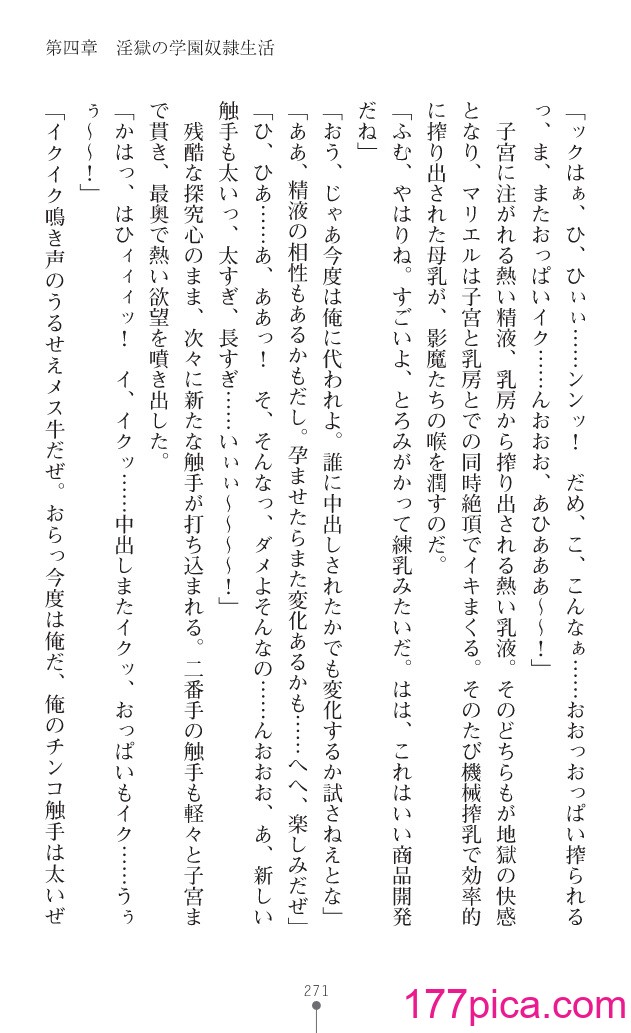 第四章　淫獄の学園奴隷生活
「ックはぁ、ひ、ひぃぃ……ンンッ！　だめ、こ、こんなぁ……おおっおっぱい搾られる
っ、ま、またおっぱいイク……んおおお、あひあああ～～！」
　子宮に注がれる熱い精液、乳房から搾り出される熱い乳液。そのどちらもが地獄の快感
となり、マリエルは子宮と乳房とでの同時絶頂でイキまくる。そのたび機械搾乳で効率的
に搾り出された母乳が、影魔たちの喉を潤すのだ。
「ふむ、やはりね。すごいよ、とろみがかって練乳みたいだ。はは、これはいい商品開発
だね」
「おう、じゃあ今度は俺に代われよ。誰に中出しされたかでも変化するか試さねえとな」
「ああ、精液の相性もあるかもだし。孕ませたらまた変化あるかも……へへ、楽しみだぜ」
「ひ、ひあ……あ、ああっ！　そ、そんなっ、ダメよそんなの……んおおお、あ、新しい
触手も太いっ、太すぎ、長すぎ……いぃぃ～～～～！」
　残酷な探究心のまま、次々に新たな触手が打ち込まれる。二番手の触手も軽々と子宮ま
で貫き、最奥で熱い欲望を噴き出した。
「かはっ、はひィィィッ！　イ、イクッ……中出しまたイクッ、おっぱいもイク……うぅ
ぅ～～！」
「イクイク鳴き声のうるせえメス牛だぜ。おらっ今度は俺だ、俺のチンコ触手は太いぜ
271
177pica.com